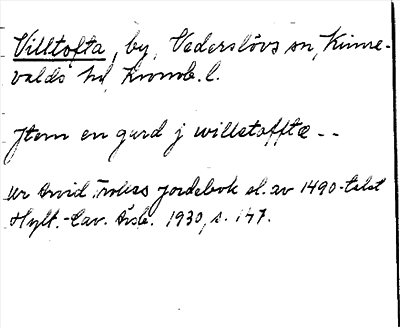 Villtofta, by, Vederslövs sn, Kinne-
valds hd, Kronob. l.
Jtem en gard j willetofftæ --
ur Arvid Trolles jordebok sl. av 1490-talet
Hylt.-Cav. Årsb. 1930, s. 147.